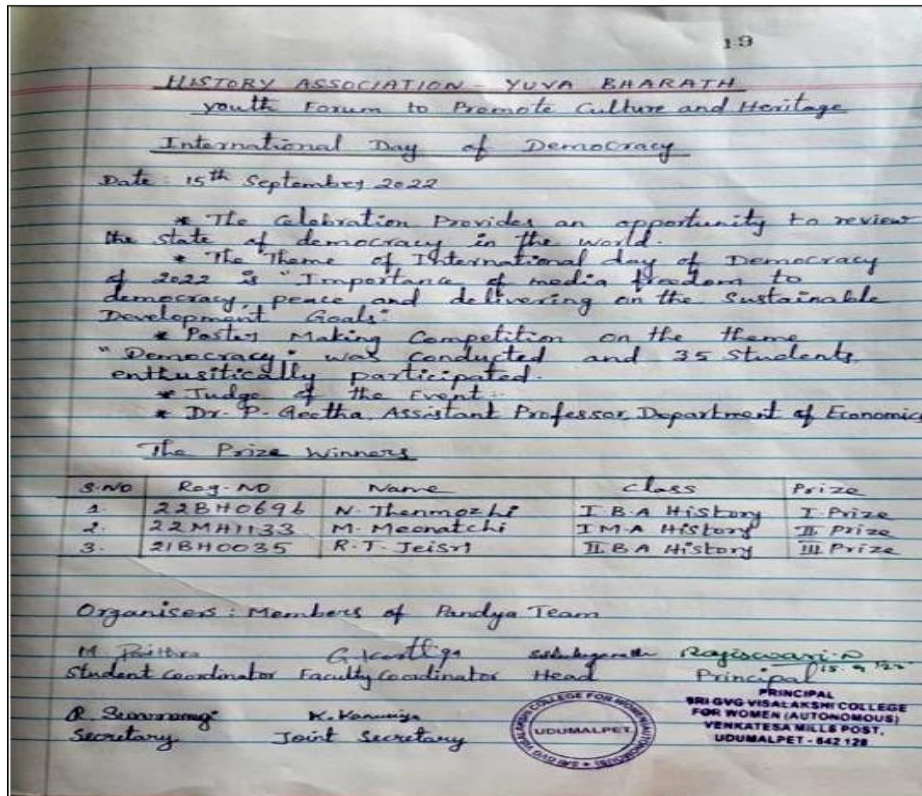 19
HISTORY ASSOCIATION - YUVA BHARATH
youth Forum to Promote Culture and Heritage
International Day of Democracy
Date : 15th September 2022
* The Celebration Provides an opportunity to review
the state of democracy in the world.
* The Theme of International day of Democracy
of 2022 is "Importance of media freedom to
democracy, peace and delivering on the Sustainable
Development Goals"
* Poster Making Competition on the theme
"Democracy" was conducted and 35 students
enthusitically participated.
* Judge of the Event :-
* Dr. P. Geetha, Assistant Professor, Department of Economics
The Prize Winners
S.NO Reg-NO Name Class Prize
1. 22BH0696 N. Thenmozhi I B.A History I Prize
2. 22MH1133 M. Meenatchi I M.A History II Prize
3. 21BH0035 R.T. Jeisri II B.A History III Prize
Organisers : Members of Pandya Team
M. Pavithra G. Rajeswari.P 15.9.22
Student coordinator Faculty coordinator Head Principal
PRINCIPAL
SRI GVG VISALAKSHI COLLEGE
FOR WOMEN (AUTONOMOUS)
VENKATESA MILLS POST,
UDUMALPET - 642 128
R. K. Kanmiya
Secretary Joint Secretary
SRI GVG VISALAKSHI COLLEGE FOR WOMEN (AUTONOMOUS)
UDUMALPET